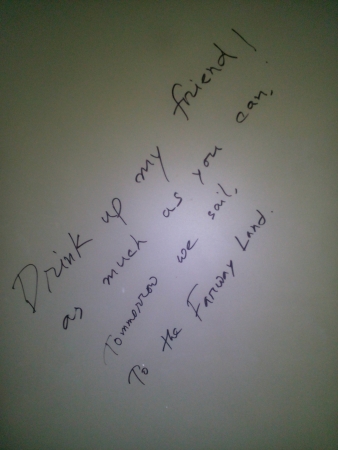 Drink up my friend!
as much as you can,
Tommorrow we sail,
To the Farway Land.